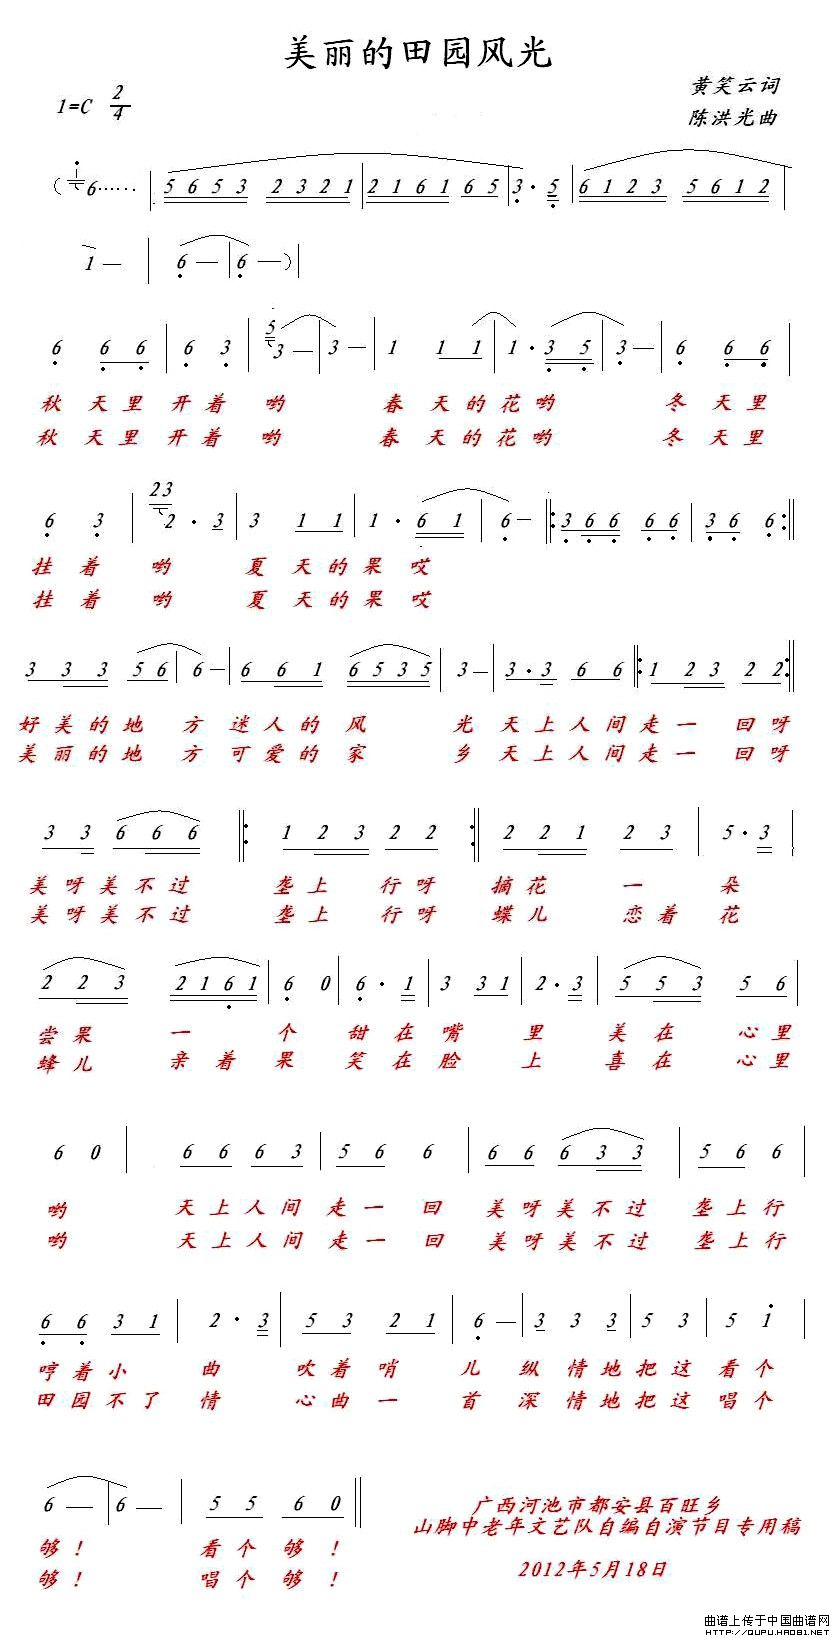 美丽的田园风光
1=C 2/4
黄笑云词
陈洪光曲
( i 6······ | 5 6 5 3 2 3 2 1 | 2 1 6 1 6 5 | 3 · 5 | 6 1 2 3 5 6 1 2 |
1 — | 6 — | 6 — ) |
6 6 6 | 6 3 | 5 3 — | 3 — | 1 1 1 | 1 · 3 5 | 3 — | 6 6 6 |
秋天里开着哟 春天的花哟 冬天里
秋天里开着哟 春天的花哟 冬天里
6 3 | 23 2 · 3 | 3 1 1 | 1 · 6 1 | 6 — |: 3 6 6 6 6 | 3 6 6 :|
挂着哟 夏天的果哎
挂着哟 夏天的果哎
3 3 3 5 6 | 6 — | 6 6 1 6 5 3 5 | 3 — | 3 · 3 6 6 |: 1 2 3 2 2 :|
好美的地方迷人的风 光天上人间走一回呀
美丽的地方可爱的家 乡天上人间走一回呀
3 3 6 6 6 |: 1 2 3 2 2 :| 2 2 1 2 3 | 5 · 3 |
美呀美不过 垄上行呀摘花一朵
美呀美不过 垄上行呀蝶儿恋着花
2 2 3 2 1 6 1 | 6 0 | 6 · 1 | 3 3 1 | 2 · 3 | 5 5 3 5 6 |
尝果一个甜在嘴里美在心里
蜂儿亲着果笑在脸上喜在心里
6 0 | 6 6 6 3 | 5 6 6 | 6 6 6 3 3 | 5 6 6 |
哟 天上人间走一回美呀美不过垄上行
哟 天上人间走一回美呀美不过垄上行
6 6 3 1 | 2 · 3 | 5 3 2 1 | 6 — | 3 3 3 | 5 i |
哼着小曲吹着哨儿纵情地把这看个
田园不了情心曲一首深情地把这唱个
6 — | 6 — | 5 5 6 0 ||
够！ 看个够！
够！ 唱个够！
广西河池市都安县百旺乡
山脚中老年文艺队自编自演节目专用稿
2012年5月18日
曲谱上传于中国曲谱网
HTTP://QUPU.HAO81.NET